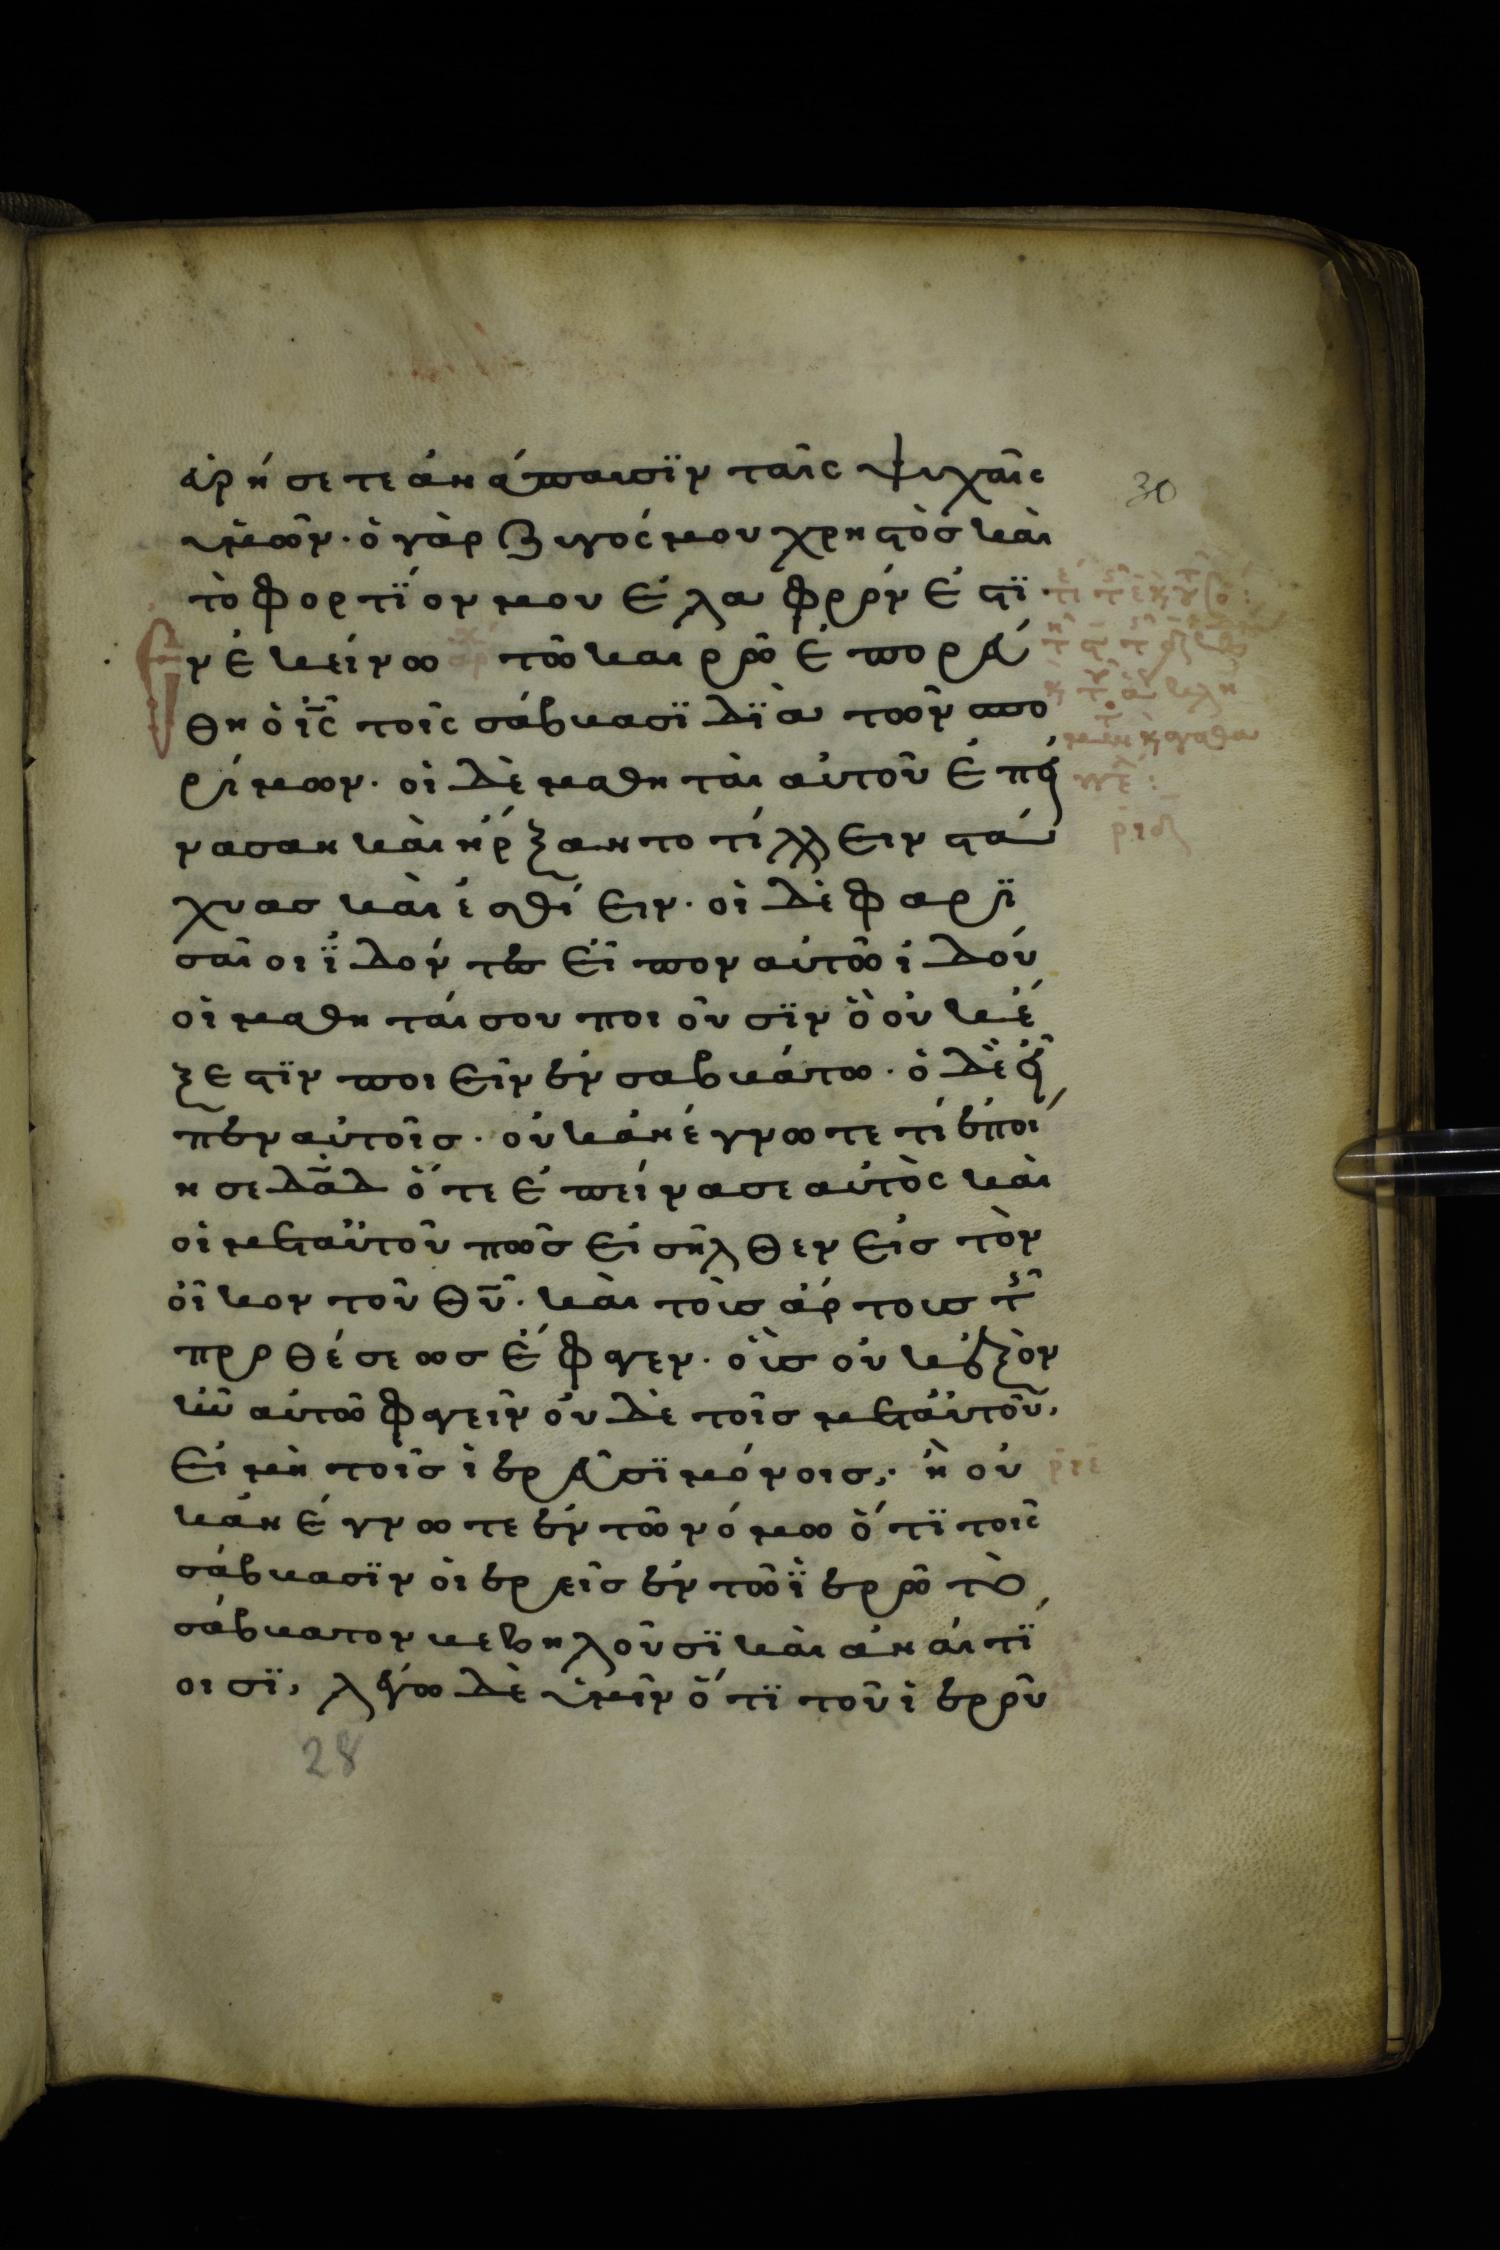 εὑρήσετε ἀνάπαυσϊν ταῖς ψυχαῖς
30
ὑμῶν· ὁ γὰρ ζυγός μου χρηστὸσ καὶ
τὸ φορτΐον μου ἐλαφρόν ἐστϊ·
Ἐν ἐκείνω τῶ καιρῶ ἐπορεύ
θη ὁ ῑς̄ τοῖς σάββασϊ δϊὰ τῶν σπο
ρίμων· οἱ δὲ μαθηταὶ αὐτοῦ ἐπεί
νασαν καὶ ἤρξαντο τίλλειν στά
χυας καὶ ἐσθίειν· οἱ δὲ φαρϊ
σαῖοι ἰδόντες εἶπον αὐτῶ ἰδού
οἱ μαθηταί σου ποιοῦσϊν ὃ οὐκ ἔ
ξεστϊν ποιεῖν ἐν σαββάτω· ὁ δὲ εἶ
πεν αὐτοῖσ· οὐκ ἀνέγνωτε τί ἐποί
ησε δᾱδ ὅτε ἐπείνασε αὐτὸς καὶ
οἱ μετ αὐτοῦ πῶσ εἰσῆλθεν εἰσ τὸν
οἶκον τοῦ θῡ· καὶ τοὺσ ἄρτουσ τῆς
προθέσεωσ ἔφαγεν· οὓσ οὐκ ἐξὸν
ἦν αὐτῶ φαγεῖν οὐδὲ τοῖσ μετ αὐτοῦ,
εἰ μὴ τοῖσ ἱερεῦσϊ μόνοισ; ἢ οὐ ρ̄ῑε̄
κ ἀνέγνωτε ἐν τῶ νόμω ὅτϊ τοῖς
σάββασϊν οἱ ἱερεῖσ ἐν τῶ ϊερῶ τὸ
σάββατον βεβηλοῦσϊ καὶ ἀναίτϊ
οι εἰσϊ, λέγω δὲ ὑμῖν ὅτϊ τοῦ ἱεροῦ
28